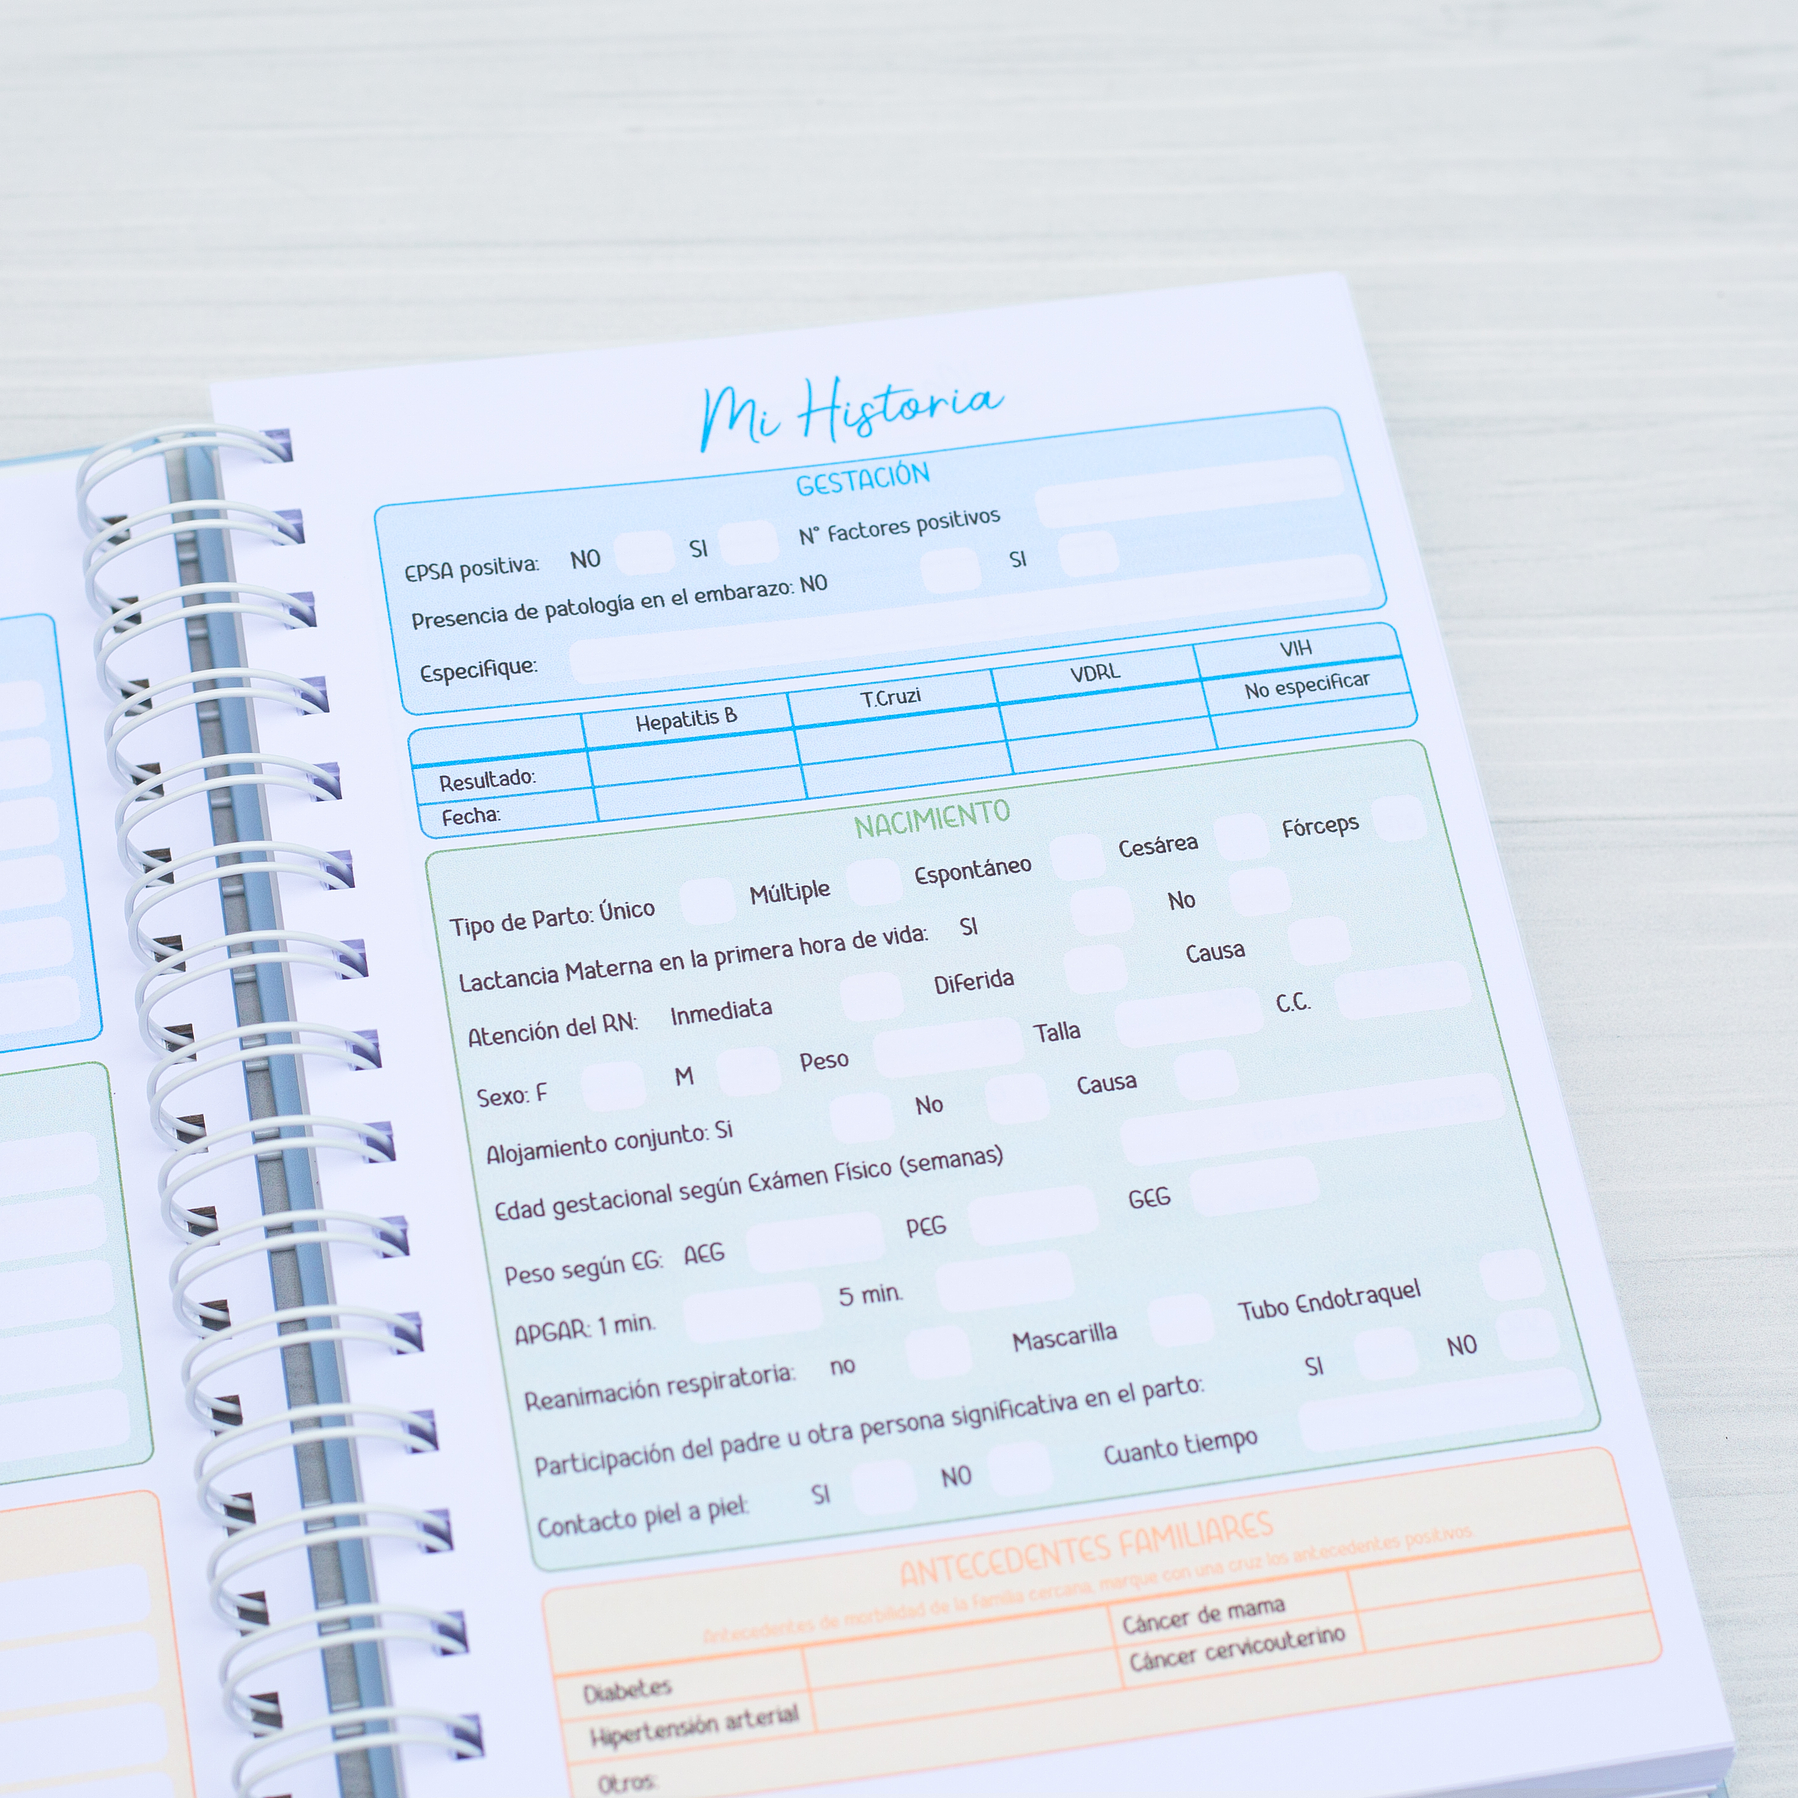 Mi Historia
GESTACIÓN
EPSA positiva: NO SI N° Factores positivos
Presencia de patología en el embarazo: NO SI
Especifique:
Hepatitis B T.Cruzi VDRL VIH
Resultado: No especificar
Fecha:
NACIMIENTO
Tipo de Parto: Único Múltiple Espontáneo Cesárea Fórceps
Lactancia Materna en la primera hora de vida: SI No
Atención del RN: Inmediata Diferida Causa
Sexo: F M Peso Talla C.C.
Alojamiento conjunto: Si No Causa
Edad gestacional según Exámen Físico (semanas)
Peso según EG: AEG PEG GEG
APGAR: 1 min. 5 min.
Reanimación respiratoria: no Mascarilla Tubo Endotraquel
Participación del padre u otra persona significativa en el parto: SI NO
Contacto piel a piel: SI NO Cuanto tiempo
ANTECEDENTES FAMILIARES
Antecedentes de morbilidad de la Familia cercana, marque con una cruz los antecedentes positivos
Diabetes Cáncer de mama
Hipertensión arterial Cáncer cervicouterino
Otros: